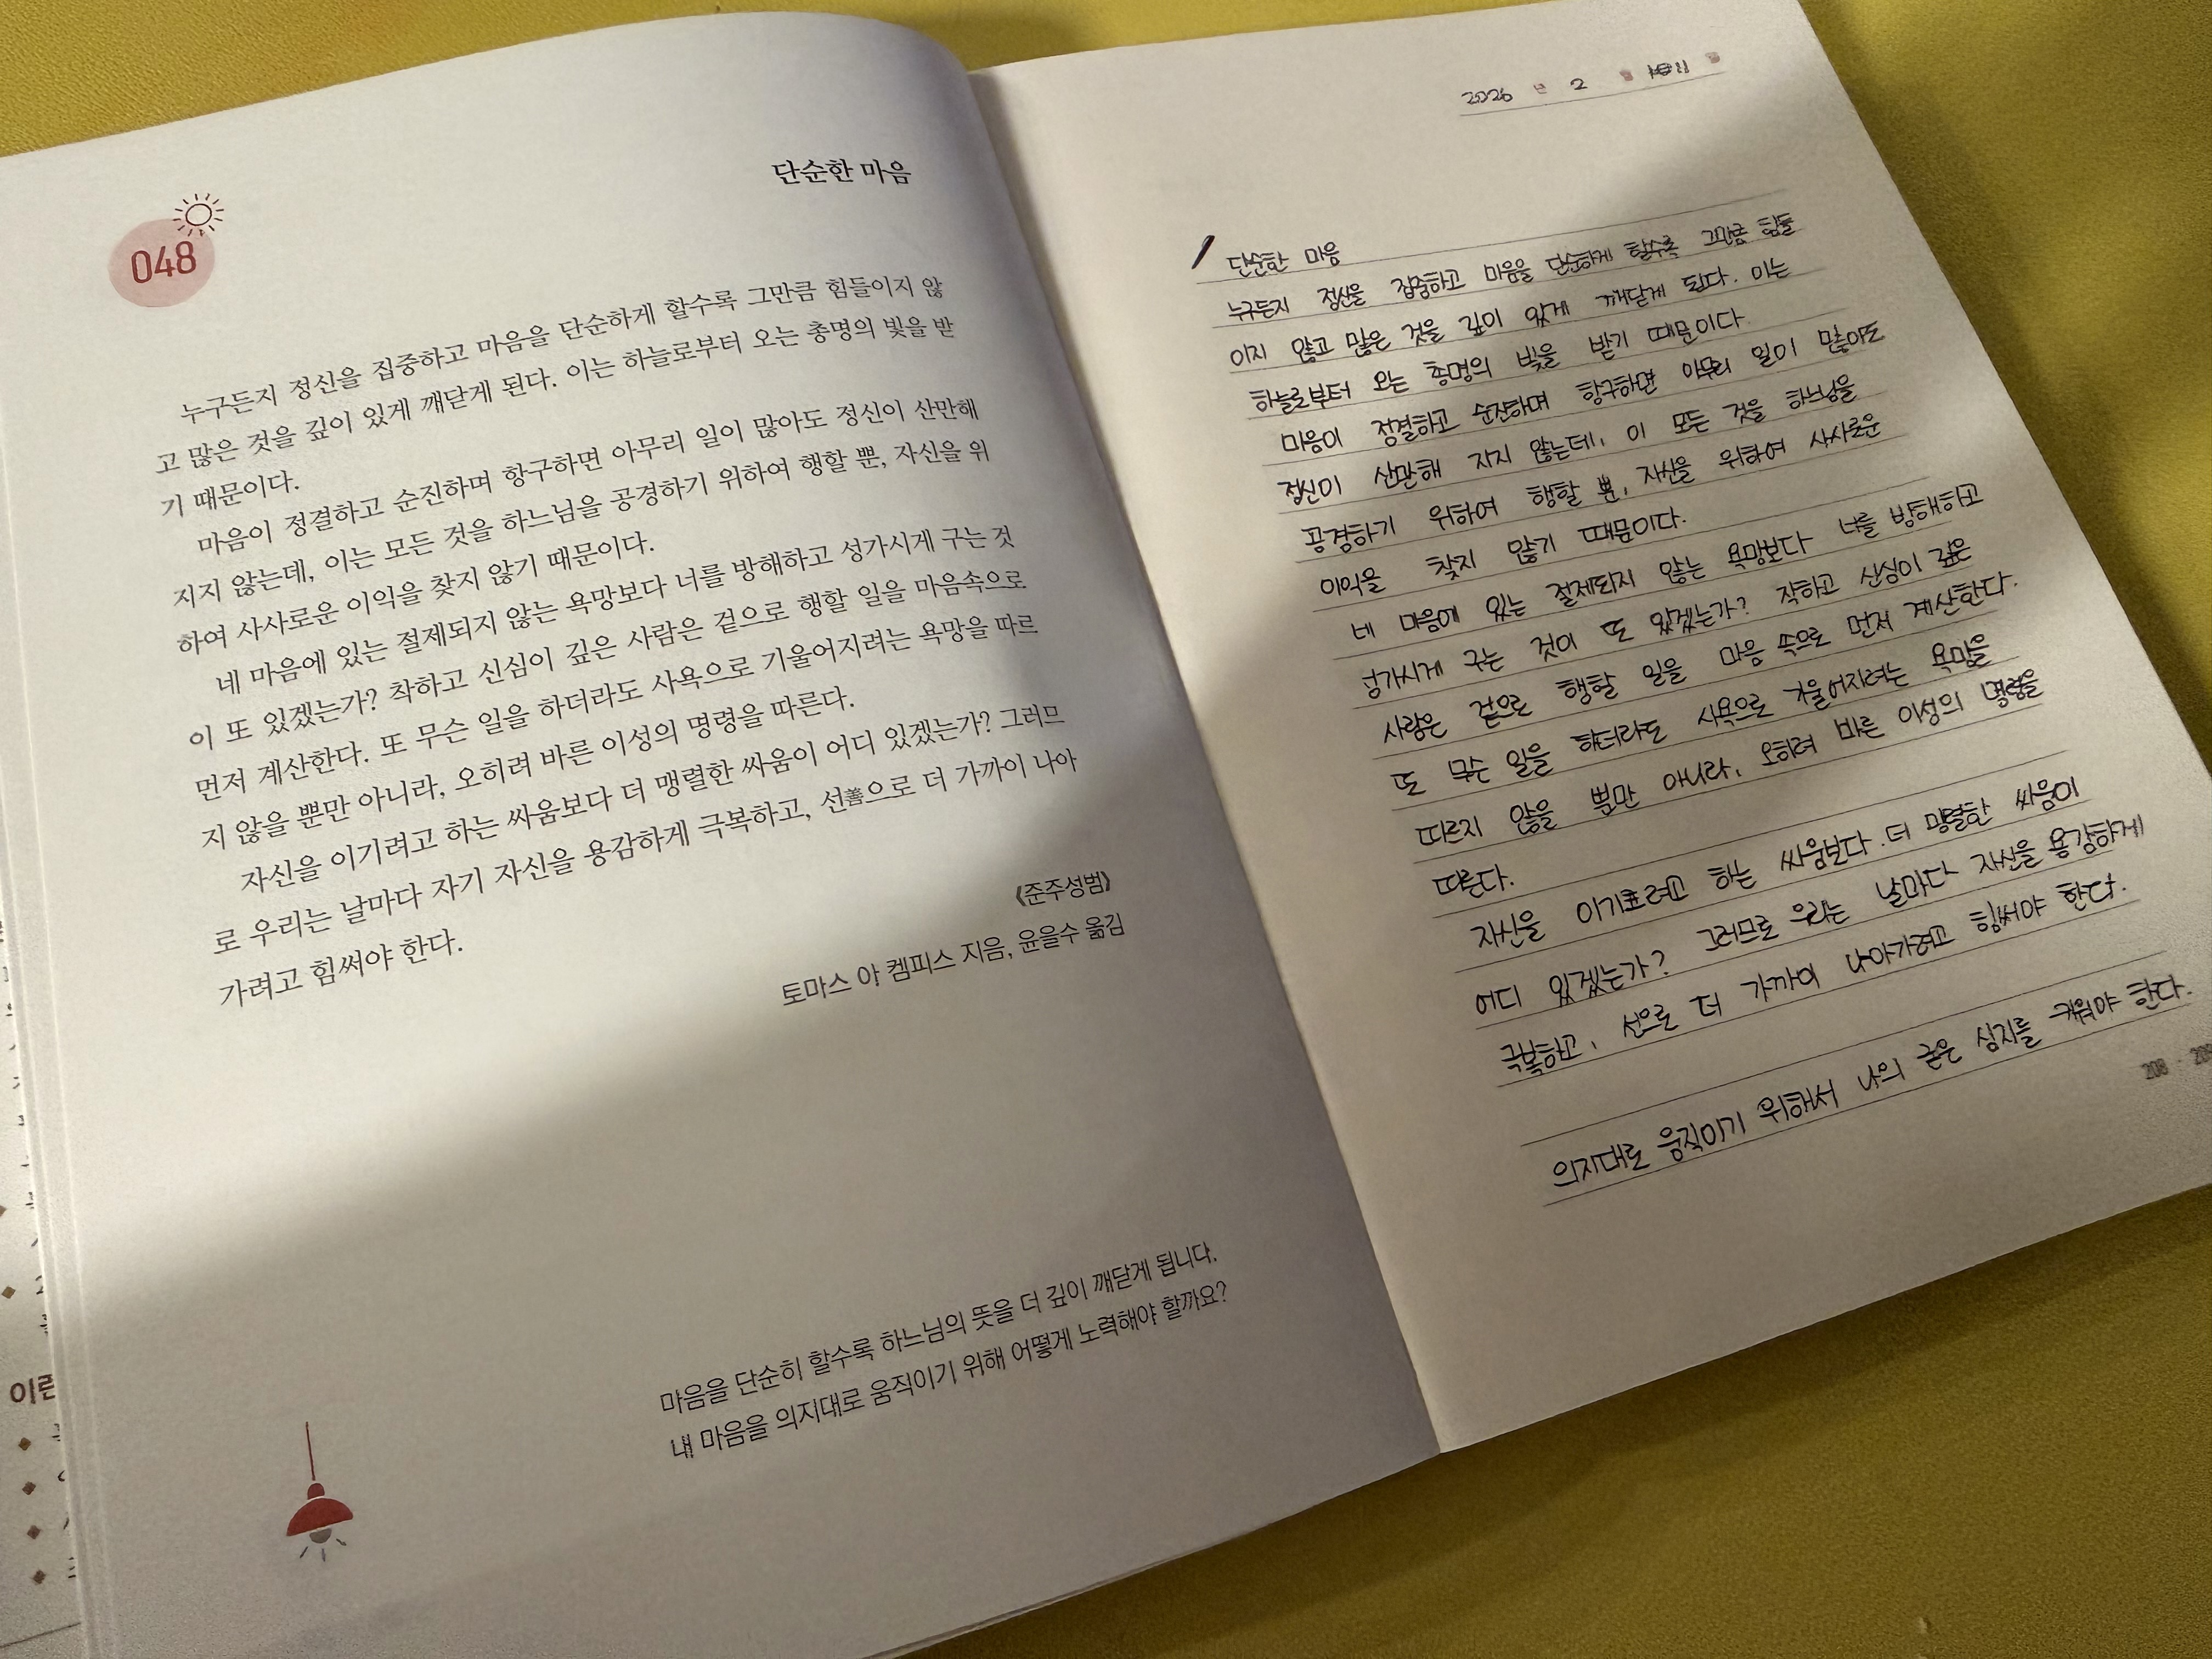 단순한 마음
048
누구든지 정신을 집중하고 마음을 단순하게 할수록 그만큼 힘들이지 않
고 많은 것을 깊이 있게 깨닫게 된다. 이는 하늘로부터 오는 총명의 빛을 받
기 때문이다.
마음이 정결하고 순진하며 항구하면 아무리 일이 많아도 정신이 산만해
지지 않는데, 이는 모든 것을 하느님을 공경하기 위하여 행할 뿐, 자신을 위
하여 사사로운 이익을 찾지 않기 때문이다.
네 마음에 있는 절제되지 않는 욕망보다 너를 방해하고 성가시게 구는 것
이 또 있겠는가? 착하고 신심이 깊은 사람은 겉으로 행할 일을 마음속으로
먼저 계산한다. 또 무슨 일을 하더라도 사욕으로 기울어지려는 욕망을 따르
지 않을 뿐만 아니라, 오히려 바른 이성의 명령을 따른다.
자신을 이기려고 하는 싸움보다 더 맹렬한 싸움이 어디 있겠는가? 그러므
로 우리는 날마다 자기 자신을 용감하게 극복하고, 선善으로 더 가까이 나아
가려고 힘써야 한다.
《준주성범》
토마스 아 켐피스 지음, 윤을수 옮김
마음을 단순히 할수록 하느님의 뜻을 더 깊이 깨닫게 됩니다.
내 마음을 의지대로 움직이기 위해 어떻게 노력해야 할까요?
이런
2026 년 2 월 11 일
단순한 마음
누구든지 정신을 집중하고 마음을 단순하게 할수록 그만큼 힘들
이지 않고 많은 것을 깊이 있게 깨닫게 된다. 이는
하늘로부터 오는 총명의 빛을 받기 때문이다.
마음이 정결하고 순진하며 항구하면 아무리 일이 많아도
정신이 산만해 지지 않는데, 이 모든 것을 하느님을
공경하기 위하여 행할 뿐, 자신을 위하여 사사로운
이익을 찾지 않기 때문이다.
네 마음에 있는 절제되지 않는 욕망보다 너를 방해하고
성가시게 구는 것이 또 있겠는가? 착하고 신심이 깊은
사람은 겉으로 행할 일을 마음 속으로 먼저 계산한다.
또 무슨 일을 하더라도 사욕으로 기울어지려는 욕망을
따르지 않을 뿐만 아니라, 오히려 바른 이성의 명령을
따른다.
자신을 이기려고 하는 싸움보다 더 맹렬한 싸움이
어디 있겠는가? 그러므로 우리는 날마다 자신을 용감하게
극복하고, 선으로 더 가까이 나아가려고 힘써야 한다.
의지대로 움직이기 위해서 나의 굳은 심지를 키워야 한다.
208